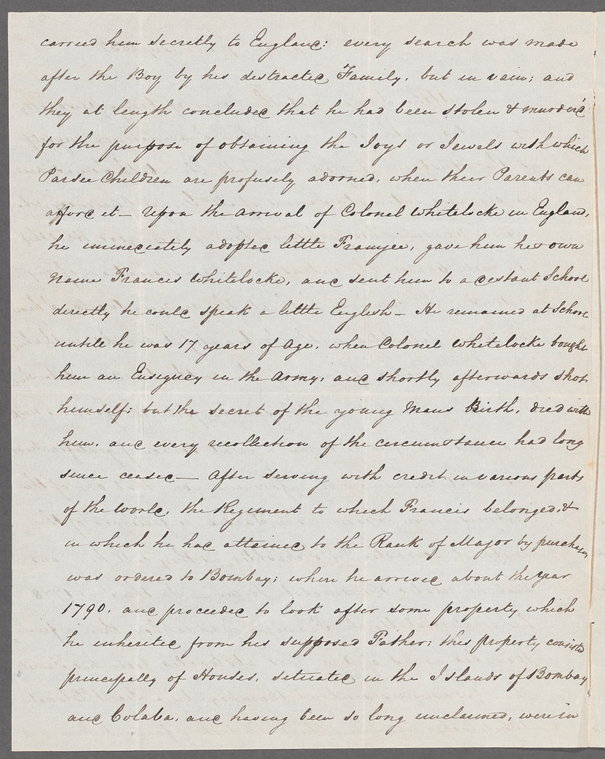 carried him secretly to England: every search was made
after the Boy by his distracted Family, but in vain; and
they at length concluded that he had been stolen & murder'd
for the purpose of obtaining the Joys or Jewels with which
Parsee Children are profusely adorned, when their Parents can
afford it — Upon the arrival of Colonel Whitelocke in England,
he immediately adopted little Framjee, gave him his own
name Francis Whitelocke, and sent him to a distant School
directly he could speak a little English — He remained at School
untile he was 17 years of Age, when Colonel Whitelocke bought
him an Ensigncy in the Army, and shortly afterwards shot
himself; but the secret of the young Mans Birth, died with
him, and every recollection of the circumstance had long
since ceased — After serving with credit in various parts
of the world, the Regiment to which Francis belonged, &
in which he had attained to the Rank of Major by purchase,
was ordered to Bombay; where he arrived about the year
1790, and proceeded to look after some property which
he inherited from his supposed Father; this property consists
principally of Houses, situated in the Islands of Bombay
and Colaba, and having been so long unclaimed, were in